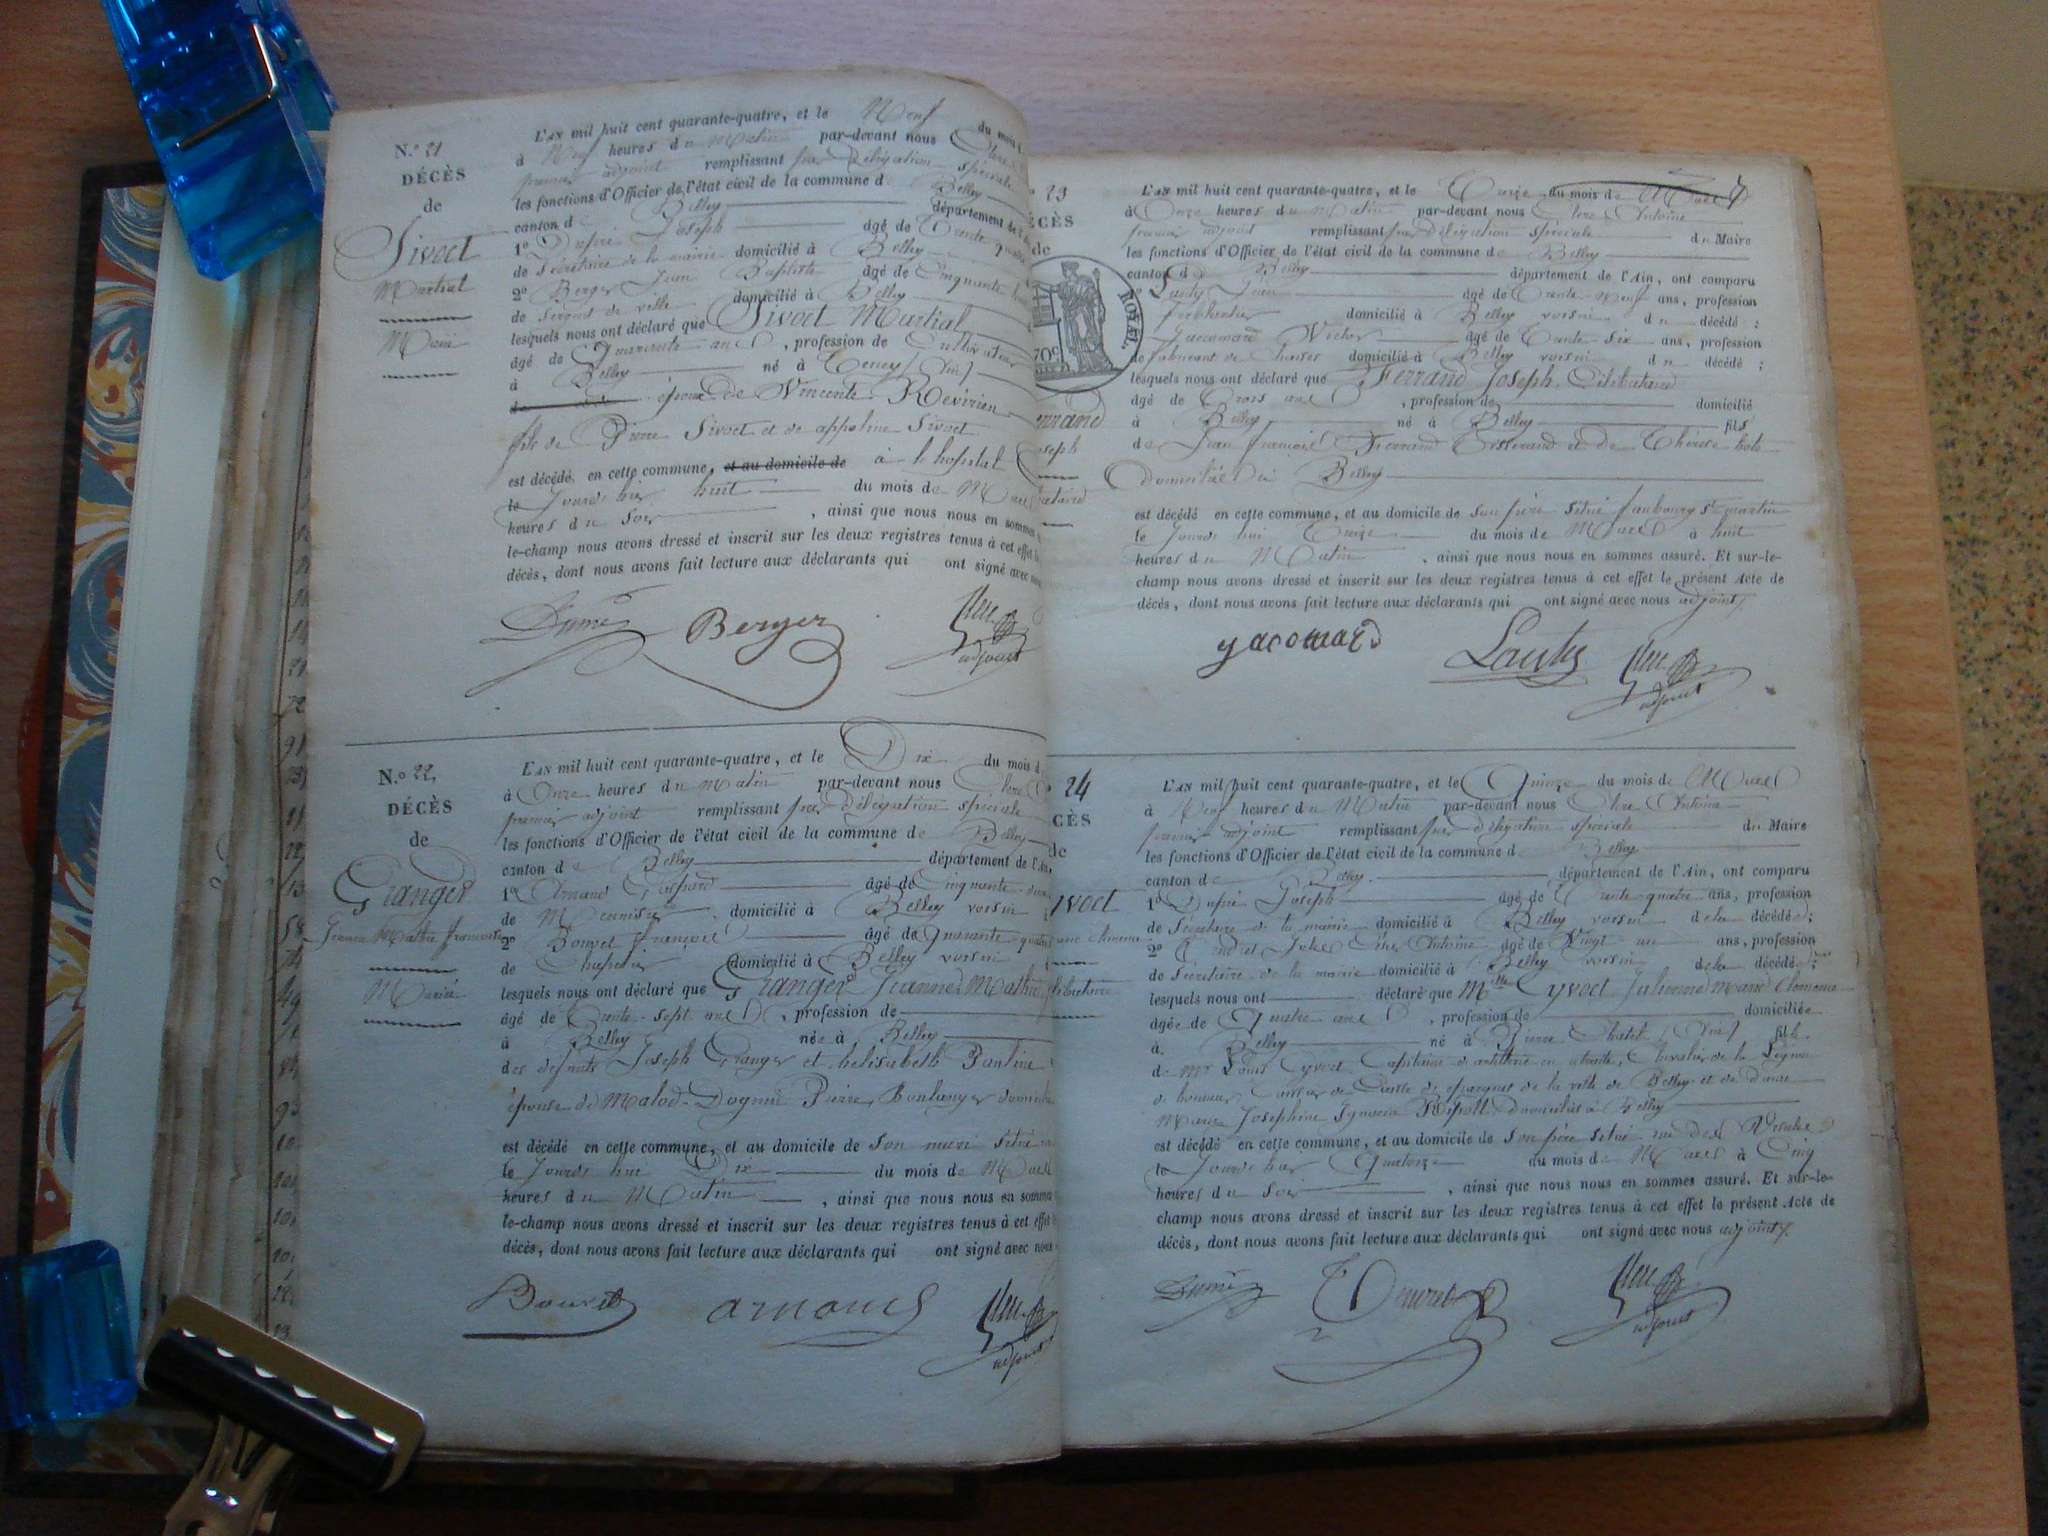 N.o 21
DÉCÈS
de
Sivoct
Martial
Marié
L'AN mil huit cent quarante-quatre, et le Neuf du mois
à Neuf heures du Matin par-devant nous
premier adjoint remplissant par délégation spéciale
les fonctions d'Officier de l'état civil de la commune de Belley
canton de Belley département de
1o Dupré Joseph âgé de Trente quatre
de Secrétaire de la mairie domicilié à Belley
2o Berger Jean Baptiste âgé de Cinquante
de Sergent de ville domicilié à Belley
lesquels nous ont déclaré que Sivoct Martial
âgé de Quarante ans, profession de Cultivateur
à Belley né à Ceney (Ain)
époux de Vincente Revirien
fils de Pierre Sivoct et de appoline Sivoct
est décédé en cette commune, et au domicile de à l'hopital
le Jourd'hier huit du mois de Mars
heures du Soir, ainsi que nous nous en sommes
le-champ nous avons dressé et inscrit sur les deux registres tenus à cet effet
décès, dont nous avons fait lecture aux déclarants qui ont signé avec nous
Berger
adjoint
N.o 22
DÉCÈS
de
Granger
Jeanne Mathie françoise
Mariée
L'AN mil huit cent quarante-quatre, et le Dix du mois d
à Onze heures du Matin par-devant nous
premier adjoint remplissant par délégation spéciale
les fonctions d'Officier de l'état civil de la commune de Belley
canton de Belley département de l'Ain,
1o Arnaud Gaspard âgé de Cinquante
de Menuisier domicilié à Belley voisin
2o Bouvet françois âgé de Quarante quatre
de Chapelier domicilié à Belley voisin
lesquels nous ont déclaré que Granger Jeanne Mathie
âgé de Trente-sept ans, profession de
à Belley née à Belley
des défunts Joseph Granger et hélisabeth Pauline
épouse de Malod-Dognin Pierre, Boulanger
est décédé en cette commune, et au domicile de Son mari situé
le Jourd'hui Dix du mois de Mars
heures du Matin, ainsi que nous nous en sommes
le-champ nous avons dressé et inscrit sur les deux registres tenus à cet effet
décès, dont nous avons fait lecture aux déclarants qui ont signé avec nous
Bouvet arnaud
adjoint
23
ÉCÈS
de
errand
oseph
L'AN mil huit cent quarante-quatre, et le Treize du mois de Mars
à Onze heures du Matin par-devant nous Antoine
premier adjoint remplissant par délégation spéciale du Maire
les fonctions d'Officier de l'état civil de la commune de Belley
canton de Belley département de l'Ain, ont comparu
Lauty Jean âgé de Trente-Neuf ans, profession
ferblantier domicilié à Belley voisin du décédé;
Jaccomard Victor âgé de Trente Six ans, profession
de fabricant de chaises domicilié à Belley voisin du décédé;
lesquels nous ont déclaré que Ferrand Joseph, Célibataire
âgé de Trois ans, profession de domicilié
à Belley né à Belley fils
de Jean françois Ferrand Tisserand et de Thérèse
domiciliés à Belley
est décédé en cette commune, et au domicile de Son père situé faubourg St martin
le Jourd'hui Treize du mois de Mars à huit
heures du Matin, ainsi que nous nous en sommes assuré. Et sur-le-
champ nous avons dressé et inscrit sur les deux registres tenus à cet effet le présent Acte de
décès, dont nous avons fait lecture aux déclarants qui ont signé avec nous adjoint
yacomard Lauty
adjoint
ROYAL.
70c
24
CÈS
de
yvoct
L'AN mil huit cent quarante-quatre, et le Quinze du mois de Mars
à Neuf heures du Matin par-devant nous Antoine
premier adjoint remplissant par délégation spéciale du Maire
les fonctions d'Officier de l'état civil de la commune de Belley
canton de Belley département de l'Ain, ont comparu
1o Dupré Joseph âgé de Trente-quatre ans, profession
de Secrétaire de la mairie domicilié à Belley voisin de la décédée;
2o Jules Antoine âgé de Vingt un ans, profession
de Secrétaire de la mairie domicilié à Belley voisin de la décédé;
lesquels nous ont déclaré que Mlle Cyvoct Julienne Marie Clemence
âgée de Quatre ans, profession de domiciliée
à Belley né à Pierre Chatel (Ain) fille
de Mr Louis Cyvoct Capitaine d'artillerie en retraite, Chevalier de la Légion
d'honneur, Caissier de Caisse d'epargnes de la ville de Belley et de Dame
Marie Joséphine Ignacia Ripoll domiciliés à Belley
est décédé en cette commune, et au domicile de Son père situé rue des
le Jourd'hier Quatorze du mois de Mars à Cinq
heures du Soir, ainsi que nous nous en sommes assuré. Et sur-le-
champ nous avons dressé et inscrit sur les deux registres tenus à cet effet le présent Acte de
décès, dont nous avons fait lecture aux déclarants qui ont signé avec nous adjoint
adjoint